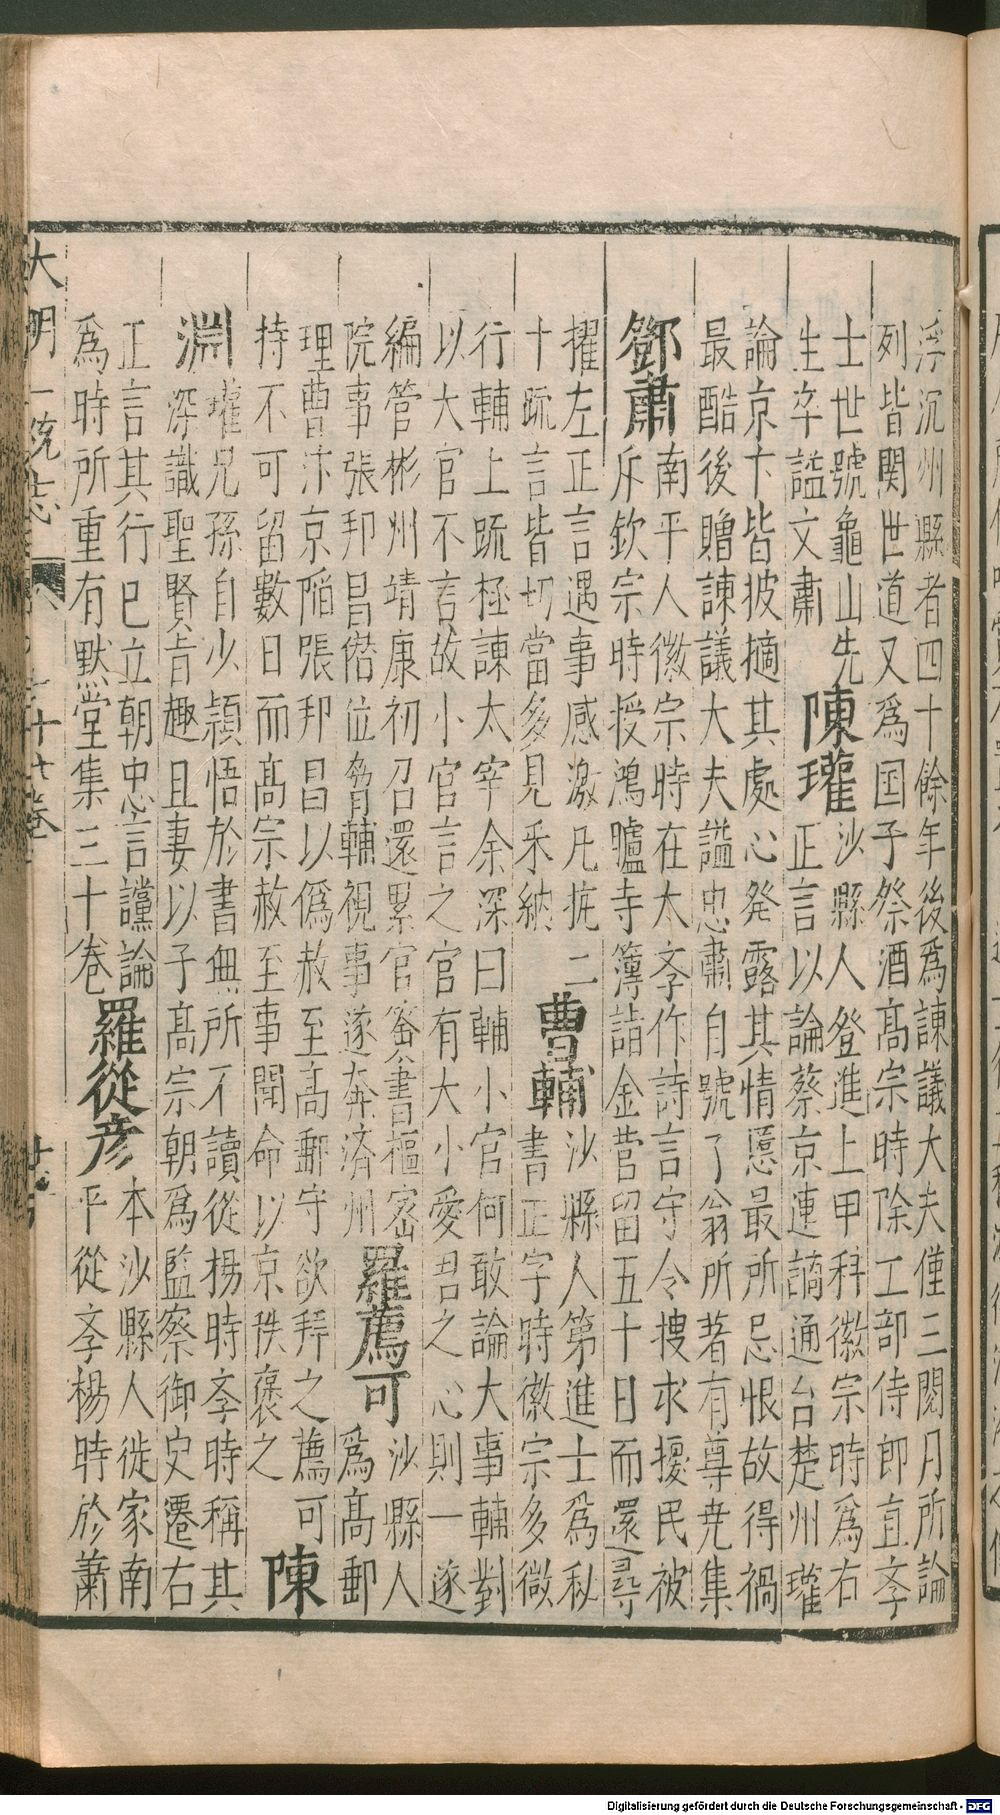 浮沉州縣者四十餘年後爲諌議大夫僅三閱月所論
列皆関世道又爲囯子祭酒髙宗時除工部侍郎直斈
士世號龜山先
生卒謚文肅
陳瓘
沙縣人登進上甲科徽宗時爲右
正言以論蔡京連謫通台楚州瓘
論京卞皆披擿其處心発露其情慝最所忌恨故得禍
最酷後贈諌議大夫謚忠肅自號了翁所著有尊尭集
鄧肅
南平人徽宗時在太斈作詩言守令搜求擾民被
斥欽宗時授鴻臚寺簿詣金营留五十日而還尋
擢左正言遇事感激凡抗二
十䟽言皆切當多見采納
曹輔
沙縣人第進士爲秘
書正字時徽宗多微
行輔上䟽極諌太宰余深曰輔小官何敢論大事輔對
以大官不言故小官言之官有大小愛君之心則一遂
編管彬州靖康初召還累官宻書樞宻
院事張邦昌僭位脅輔視事遂奔済州
羅薦可
沙縣人
爲髙郵
理曹汴京陷張邦昌以僞赦至高郵守欲拜之薦可
持不可留數日而髙宗赦至事聞命以京秩褒之
陳
淵
瓘兄孫自少頴悟於書無所不讀從楊時斈時稱其
深識聖賢㫖趣且妻以子髙宗朝爲監察御史遷右
正言其行巳立朝忠言讜論
爲時所重有默堂集三十卷
羅從彦
本沙縣人徙家南
平從斈楊時於蕭
大明一統志
七十七卷
Digitalisierung gefördert durch die Deutsche Forschungsgemeinschaft - DFG